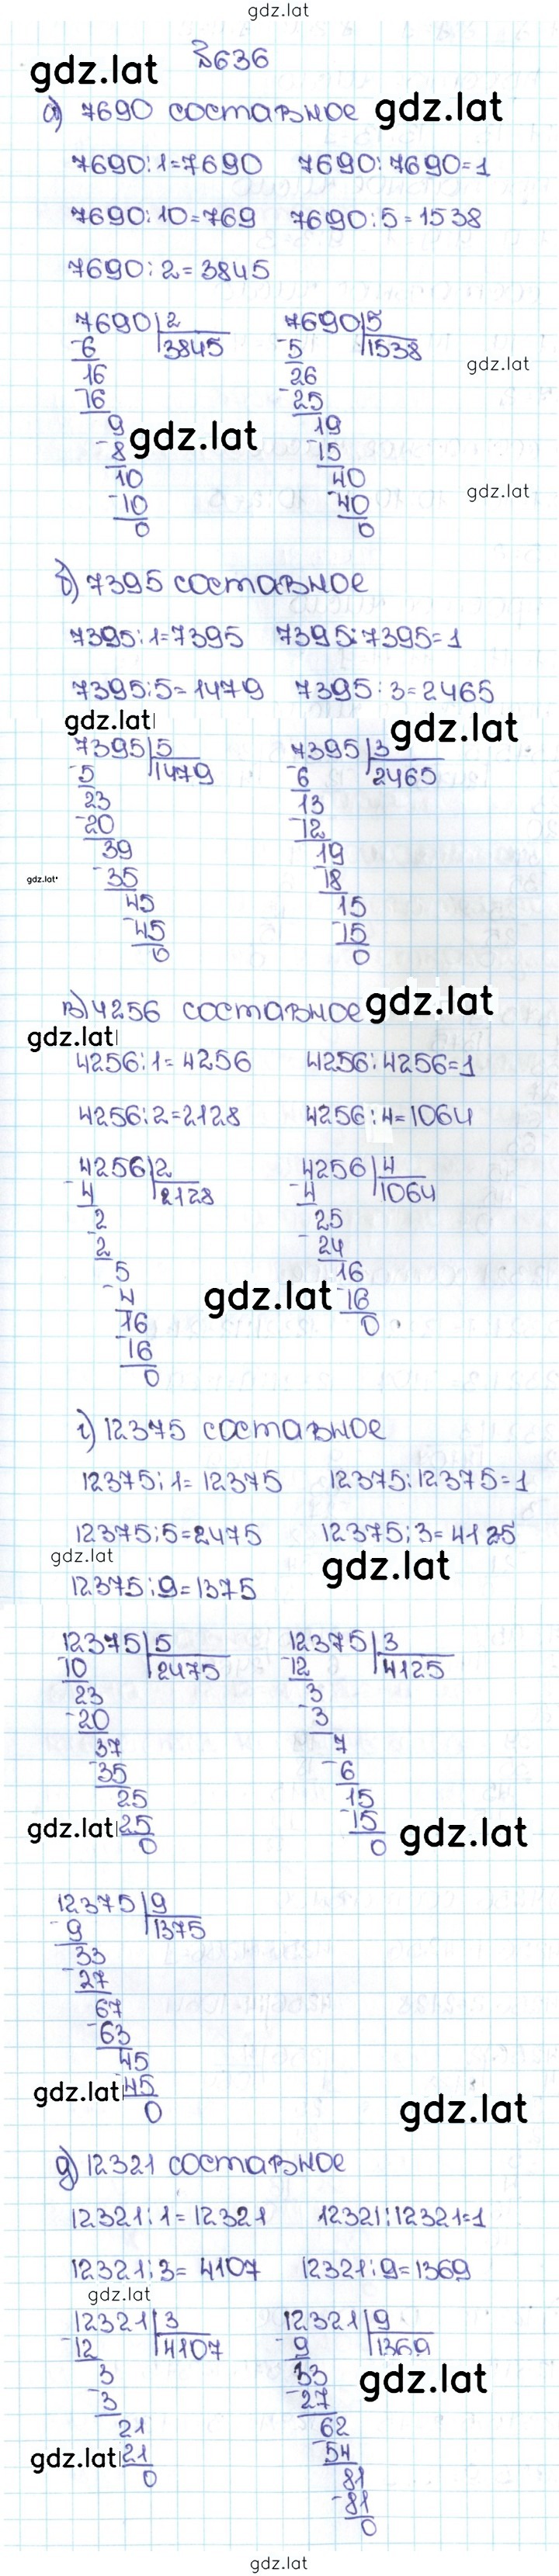 gdz.lat
№636
gdz.lat
а) 7690 составное gdz.lat
7690:1=7690 7690:7690=1
7690:10=769 7690:5=1538
7690:2=3845
7690|2 7690|5
-6 3845 -5 1538
16 26 gdz.lat
-16 -25
9 19
-8 gdz.lat -15
10 40 gdz.lat
-10 -40
0 0
б) 7395 составное
7395:1=7395 7395:7395=1
7395:5=1479 7395:3=2465
gdz.lat gdz.lat
7395|5 7395|3
-5 1479 -6 2465
23 13
-20 -12
39 19
gdz.lat -35 -18
45 15
-45 -15
0 0
в) 4256 составное gdz.lat
gdz.lat
4256:1=4256 4256:4256=1
4256:2=2128 4256:4=1064
4256|2 4256|4
-4 2128 -4 1064
2 25
-2 -24
5 16
-4 gdz.lat -16
16 0
-16
0
г) 12375 составное
12375:1=12375 12375:12375=1
12375:5=2475 12375:3=4125
gdz.lat gdz.lat
12375:9=1375
12375|5 12375|3
-10 2475 -12 4125
23 3
-20 -3
37 7
-35 -6
25 15
gdz.lat 25 -15 gdz.lat
0 0
12375|9
-9 1375
33
-27
67
-63
45
gdz.lat 45
0 gdz.lat
д) 12321 составное
12321:1=12321 12321:12321=1
12321:3=4107 12321:9=1369
gdz.lat
12321|3 12321|9
-12 4107 -9 1369
3 33 gdz.lat
-3 -27
21 62
gdz.lat 21 -54
0 81
-81
0
gdz.lat